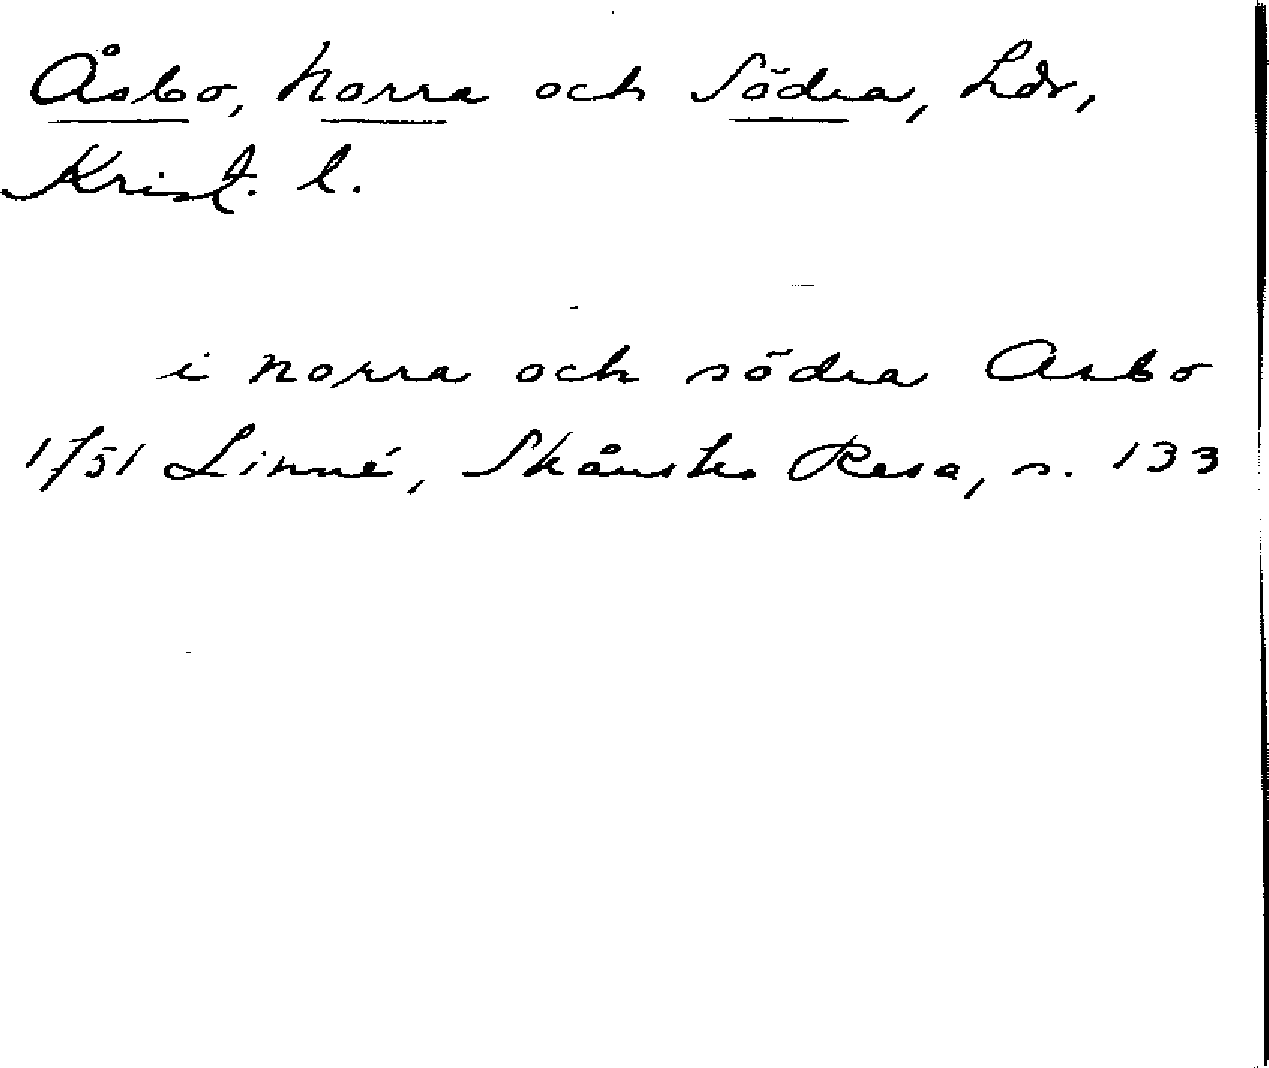 Åsbo, Norra och Södra, hdr,
Krist. l.
i norra och södra Asbo
1751 Linné, Skånska Resa, s. 133